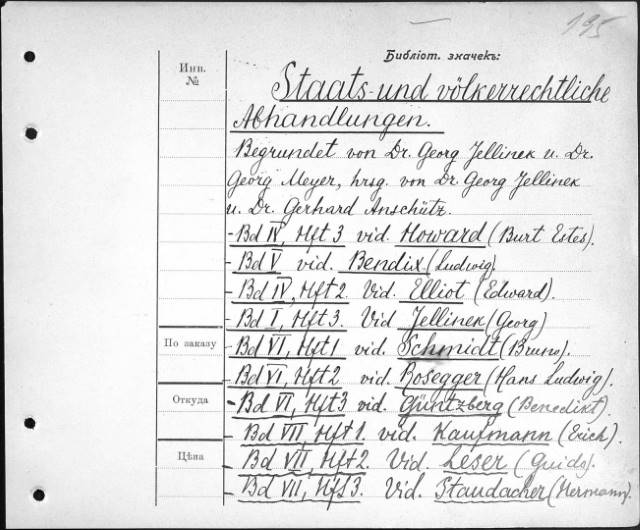 195
Библіот. значекъ:
Инв.
№
Staats- und völkerrechtliche
Abhandlungen.
Begrundet von Dr. Georg Jellinek u. Dr.
Georg Meyer, hrsg. von Dr. Georg Jellinek
u. Dr. Gerhard Anschütz.
- Bd IV, Hft 3 vid. Howard (Burt Estes).
- Bd V vid. Bendix (Ludwig).
- Bd IV, Hft 2. Vid. Elliot (Edward).
- Bd I, Hft 3. Vid Jellinek (Georg)
По заказу
- Bd VI, Hft 1 vid. Schmidt (Bruno).
- Bd VI, Hft 2 vid. Rosegger (Hans Ludwig).
Откуда
- Bd VI, Hft 3 vid. Güntzberg (Benedikt).
- Bd VII, Hft 1. vid. Kaufmann (Erich).
Цѣна
- Bd VII, Hft 2. Vid. Leser (Guido).
- Bd VII, Hft 3. Vid. Staudacher (Hermann)